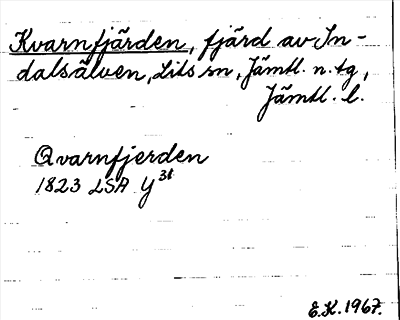 Kvarnfjärden, fjärd av In-
dalsälven, Lits sn, Jämtl. n. tg,
Jämtl. l.
Qvarnfjerden
1823 LSA Y 31
E.K. 1967.